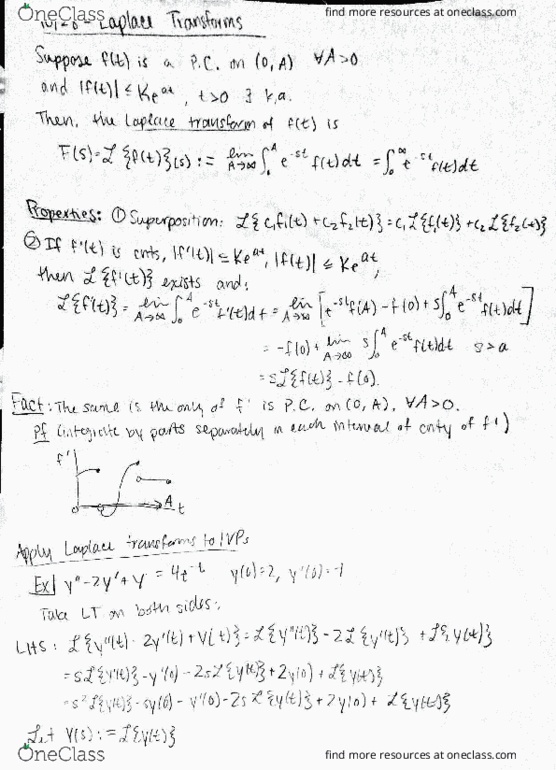 OneClass
find more resources at oneclass.com
Laplace Transforms
Suppose f(t) is a P.C. on (0,A) ∀A>0
and |f(t)| ≤ Ke^at, t>0 ∃ k,a.
Then, the Laplace transform of f(t) is
F(s)=ℒ{f(t)}(s) := lim A→∞ ∫₀^A e^-st f(t)dt = ∫₀^∞ e^-st f(t)dt
Properties: ① Superposition: ℒ{c₁f₁(t)+c₂f₂(t)}=c₁ℒ{f₁(t)}+c₂ℒ{f₂(t)}
② If f'(t) is cnts, |f'(t)| ≤ Ke^at, |f(t)| ≤ Ke^at,
then ℒ{f'(t)} exists and:
ℒ{f'(t)} = lim A→∞ ∫₀^A e^-st f'(t)dt = lim A→∞ [e^-st f(A) - f(0) + s∫₀^A e^-st f(t)dt]
= -f(0) + lim A→∞ s∫₀^A e^-st f(t)dt s>a
= sℒ{f(t)} - f(0).
Fact: The same is the only of f' is P.C. on (0,A), ∀A>0.
Pf (integrate by parts separately in each interval of cnty of f')
f'
0 A t
Apply Laplace transforms to IVPs
Ex| y"-2y'+y = 4e^-t y(0)=2, y'(0)=-1
Take LT on both sides:
LHS: ℒ{y"(t) - 2y'(t) + y(t)} = ℒ{y"(t)} - 2ℒ{y'(t)} + ℒ{y(t)}
= sℒ{y'(t)} - y'(0) - 2sℒ{y(t)} + 2y(0) + ℒ{y(t)}
= s²ℒ{y(t)} - sy(0) - y'(0) - 2sℒ{y(t)} + 2y(0) + ℒ{y(t)}
Let Y(s) := ℒ{y(t)}
OneClass
find more resources at oneclass.com